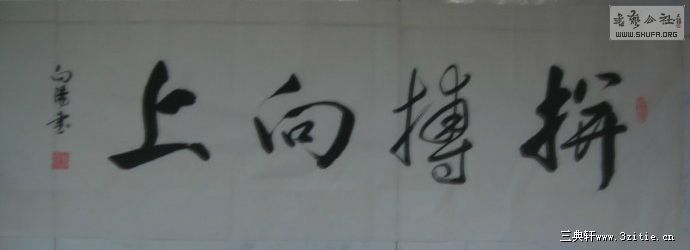 拼搏向上
向阳书
书艺公社
WWW.SHUFA.ORG
三典轩www.3zitie.cn